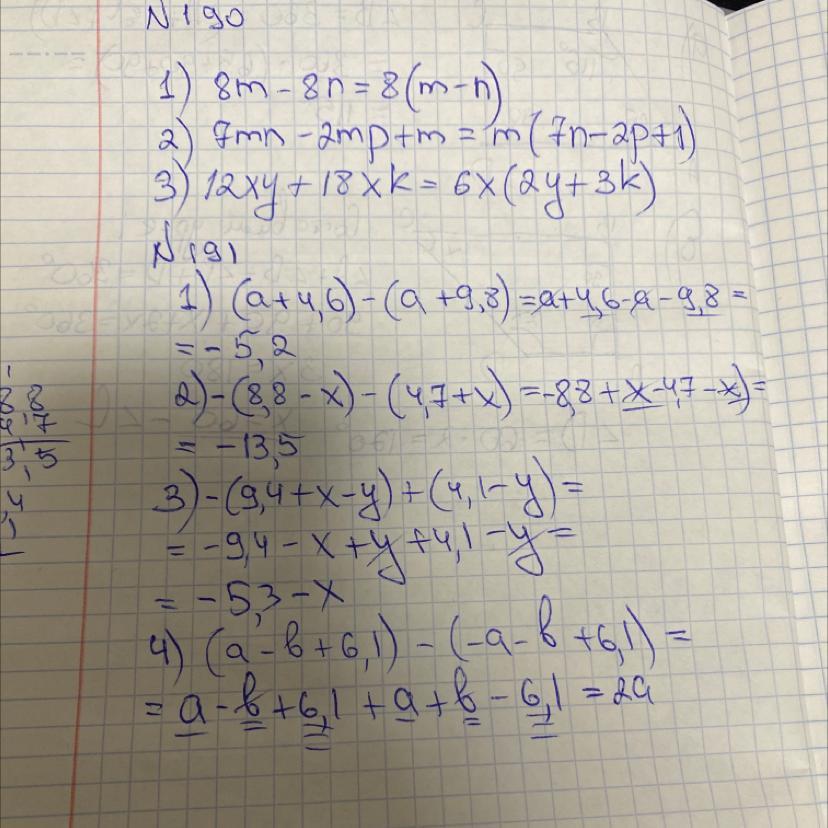 N 190
1) 8m - 8n = 8(m-n)
2) 7mn - 2mp + m = m(7n-2p+1)
3) 12xy + 18xk = 6x(2y+3k)
N 191
1) (a+4,6)-(a+9,8)=a+4,6-a-9,8=
= -5,2
2) -(8,8-x)-(4,7+x)=-8,8+x-4,7-x)=
= -13,5
3) -(9,4+x-y)+(4,1-y)=
= -9,4-x+y+4,1-y=
= -5,3-x
4) (a-b+6,1)-(-a-b+6,1)=
= a-b+6,1+a+b-6,1=2a
8,8
4,7
3,5
,4